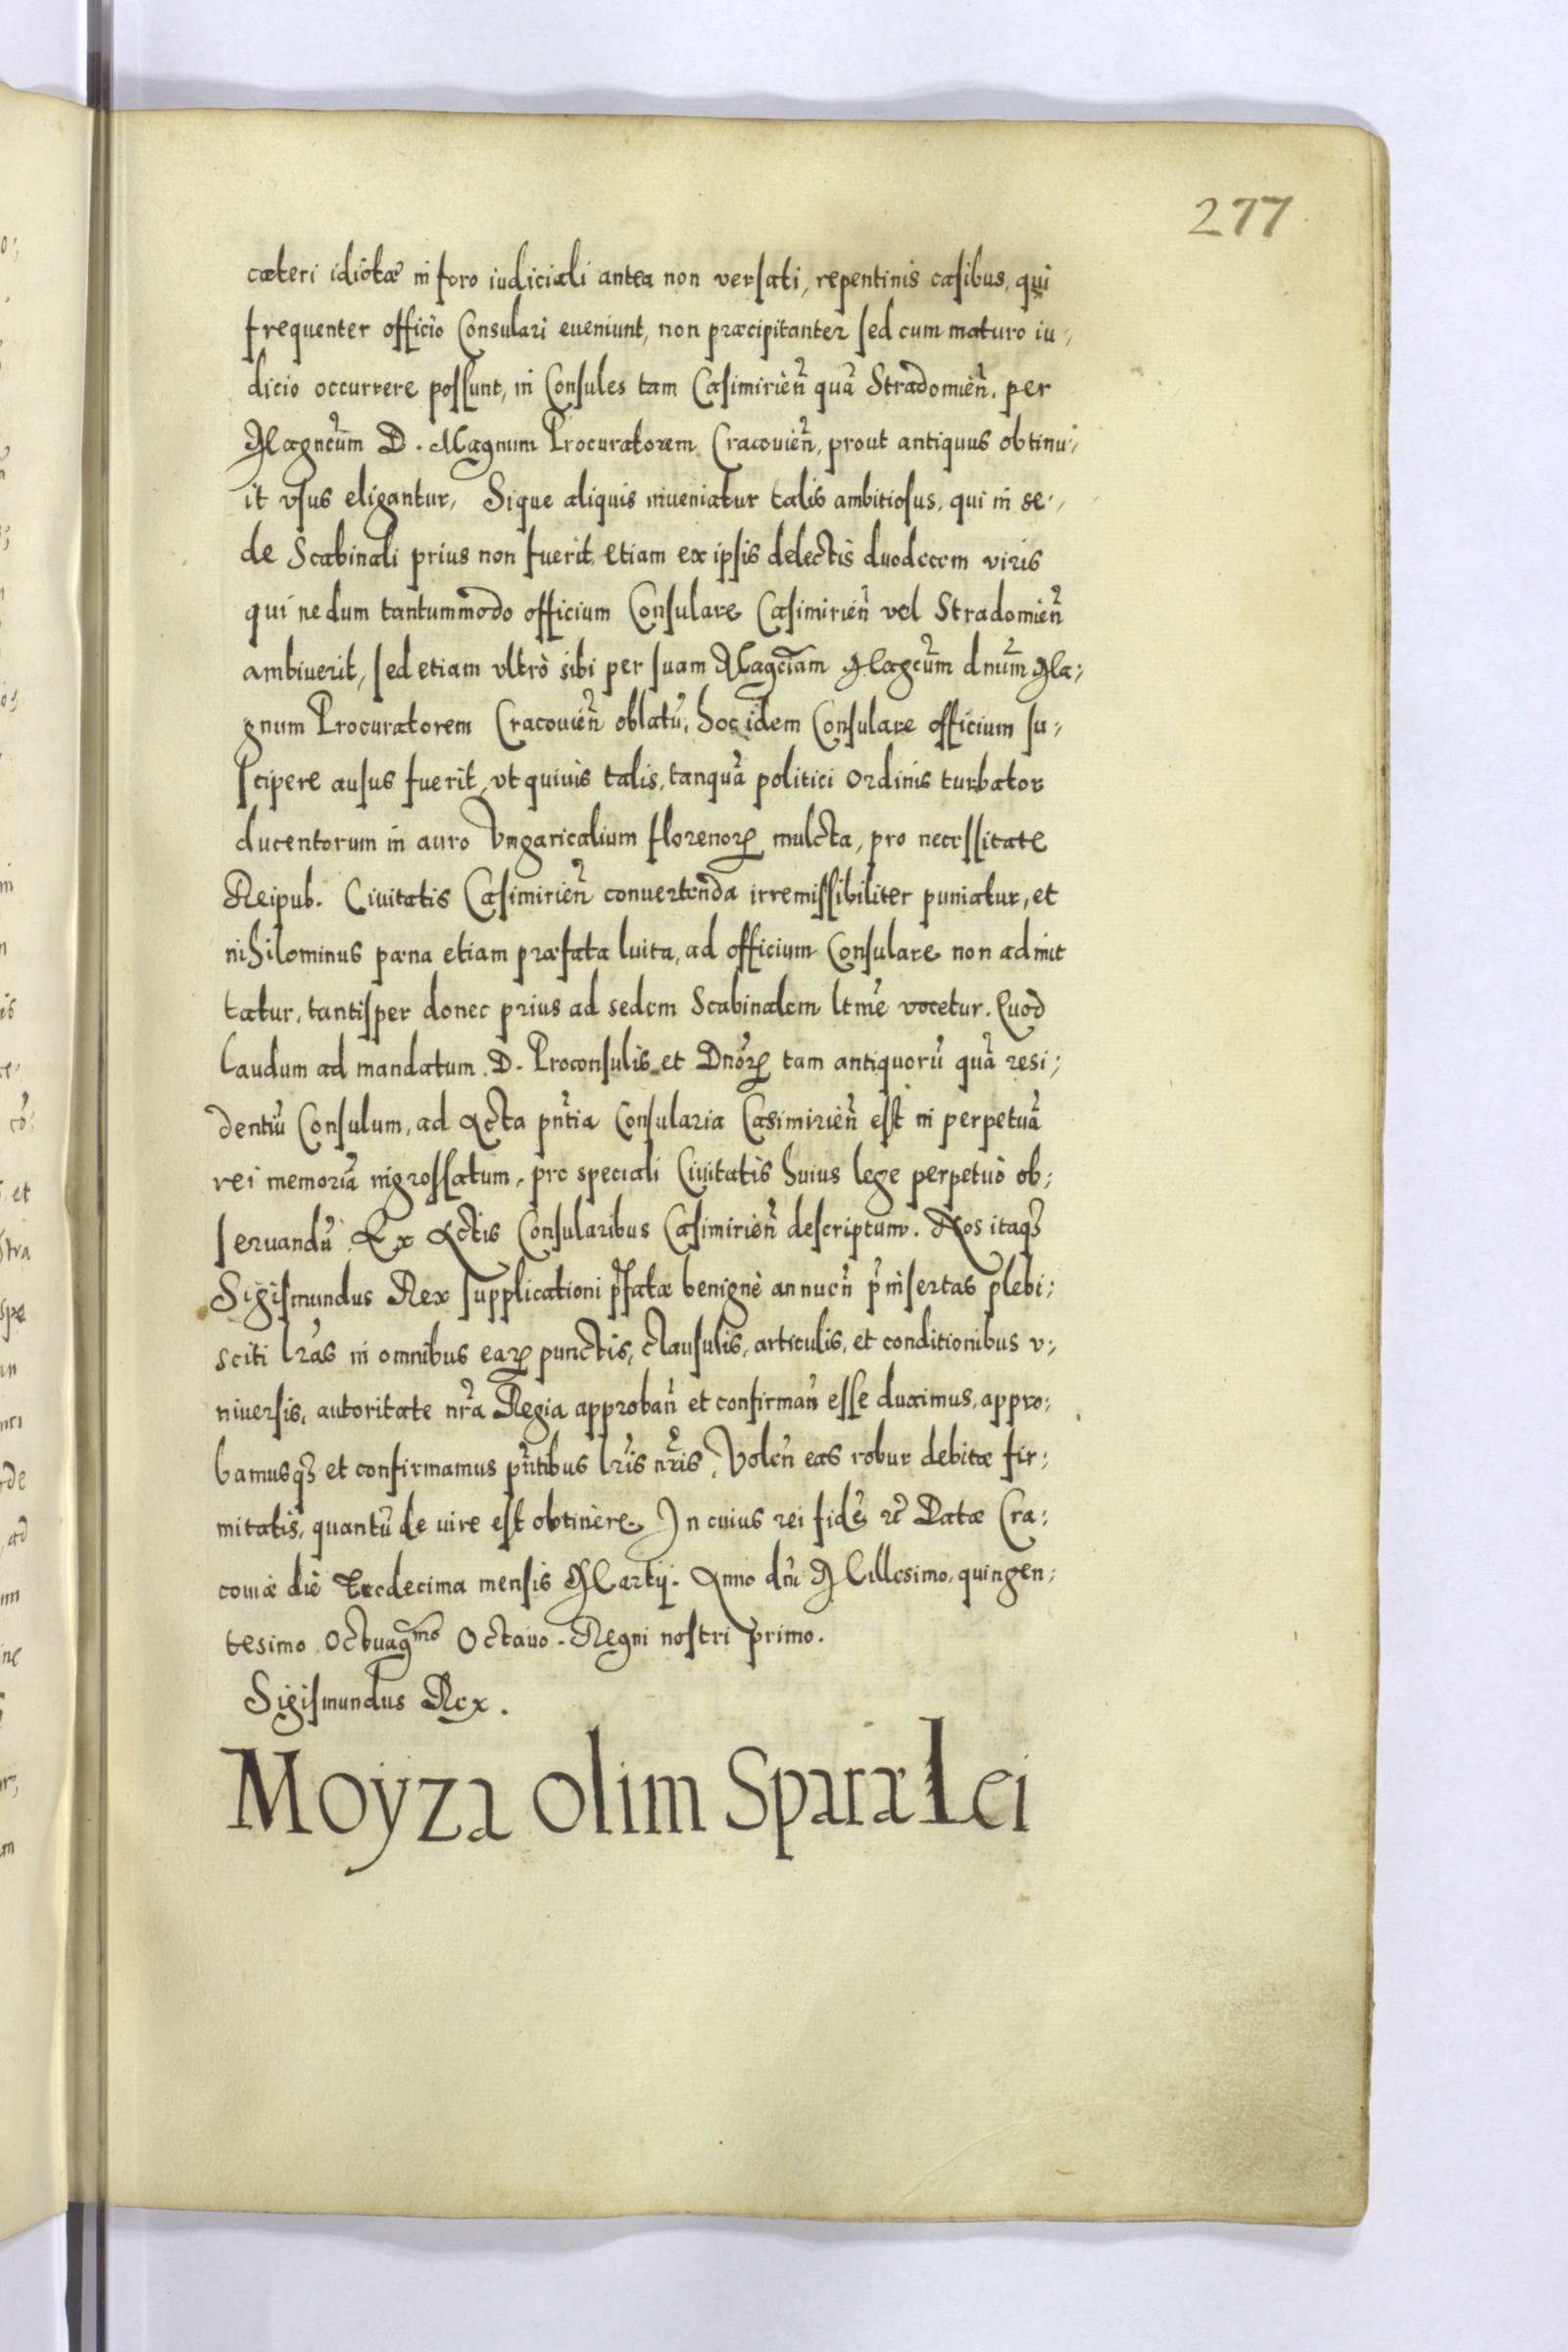 277
cæteri idiotæ in foro iudiciali antea non versati, repentinis casibus, qui
frequenter officio Consulari eueniunt, non præcipitanter sed cum maturo iu;
dicio occurrere possunt, in Consules tam Casimirien̄ quā Stradomien̄. per
Magncūm D. Magnum Procuratorem Cracouien̄, prout antiquus obtinu;
it vsus eligantur, Sique aliquis inueniatur talis ambitiosus, qui in se;
de Scabinali prius non fuerit, etiam ex ipsis delectis duodecem viris
qui nedum tantummodo officium Consulare Casimirien̄ vel Stradomien̄
ambiuerit, sed etiam vltrò sibi per suam Magciam Magcūm dnūm Ma;
gnum Procuratorem Cracouien̄ oblatū, hoc idem Consulare officium su;
scipere ausus fuerit, vt quiuis talis, tanquā politici ordinis turbator
ducentorum in auro Vngaricalium florenorꝝ mulcta, pro necessitate
Reipub. Ciuitatis Casimirien̄ conuertenda irremissibiliter puniatur, et
nihilominus pæna etiam præfata luita, ad officium Consulare non admit
tatur, tantisper donec prius ad sedem Scabinalem ltmē vocetur. Quod
laudum ad mandatum D. Proconsulis et Dnōrꝝ tam antiquorū quā resi;
dentiū Consulum, ad Acta pn̄tia Consularia Casimirien̄ est in perpetuā
rei memoriā ingrossatum, pro speciali Ciuitatis huius lege perpetuò ob;
seruandū. Ex Actis Consularibus Casimirien̄ descriptum. Nos itaqꝫ
Sigismundus Rex supplicationi p̄fatæ benignè annuen̄ p̄insertas plebi;
sciti lr̄as in omnibus earꝝ punctis, clausulis, articulis, et conditionibus v;
niuersis, autoritate nr̄a Regia approban̄ et confirman̄ esse duximus, appro;
bamusqꝫ et confirmamus pn̄tibus lr̄is nr̄is, Volen̄ eas robur debitæ fir;
mitatis, quantū de iure est obtinère. In cuius rei fidē rc̄ Datæ Cra;
couiæ die Tredecima mensis Martij. Anno dn̄i Millesimo, quingen;
tesimo Octuagmo Octauo. Regni nostri primo.
Sigismundus Rex.
Moyza olim Spara Lei